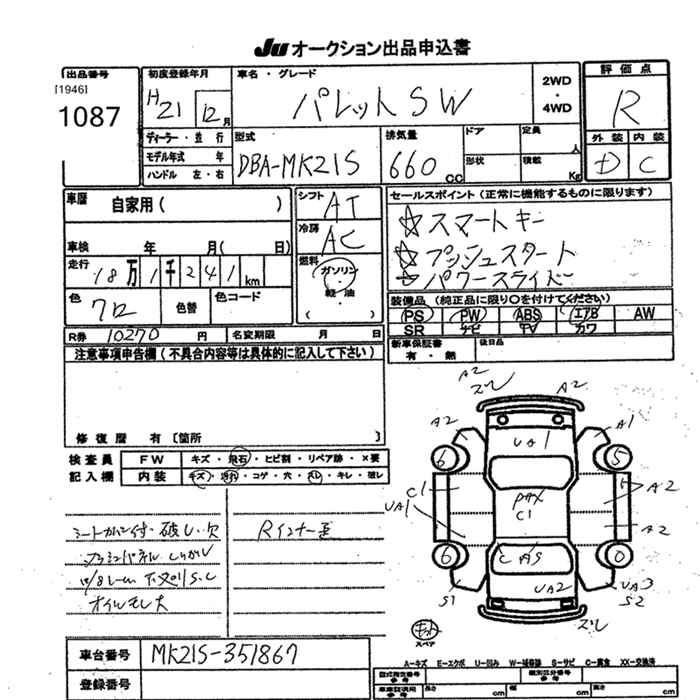 JU オークション出品申込書
出品番号
[1946]
1087
初度登録年月
H21 12月
車名・グレード
パレットSW
2WD
・
4WD
評価点
R
外装 内装
D C
ディーラー・並行
モデル年式 年
ハンドル 左・右
型式
DBA-MK21S
排気量
660 CC
ドア
形状
定員 人
積載 Kg
車歴
自家用 ( )
車検 年 月( 日)
走行
18万1千241km
色
クロ
色替
色コード
シフト
AT
冷房
AC
燃料
ガソリン
・
軽油
( )
セールスポイント (正常に機能するものに限ります)
☆スマートキー
☆プッシュスタート
☆パワースライドー
装備品 (純正品に限り○を付けてください)
PS PW ABS エアB AW
SR ナビ TV カワ
R券 10270 円
名変期限 月 日
新車保証書
有・無
後日品
注意事項申告欄 (不具合内容等は具体的に記入して下さい)
修復歴 有 〔箇所 〕
検査員
記入欄
FW キズ・飛石・ヒビ割・リペア跡・×要
内装 キズ・汚れ・コゲ・穴・スレ・キレ・破レ
シートカバー付・破レ・欠
Rインナー歪
オイルモレ大
A2
ズレ
A2
A2
A1
UA1
6
5
C1
UA1
C1
A2
A2
6
C A5
0
S1
UA2
UA3
S2
ズレ
スペア
A-キズ E-エクボ U-凹み W-補修跡 S-サビ C-腐食 XX-交換済
車台番号
MK21S-351867
登録番号
参考
長さ cm
cm
cm